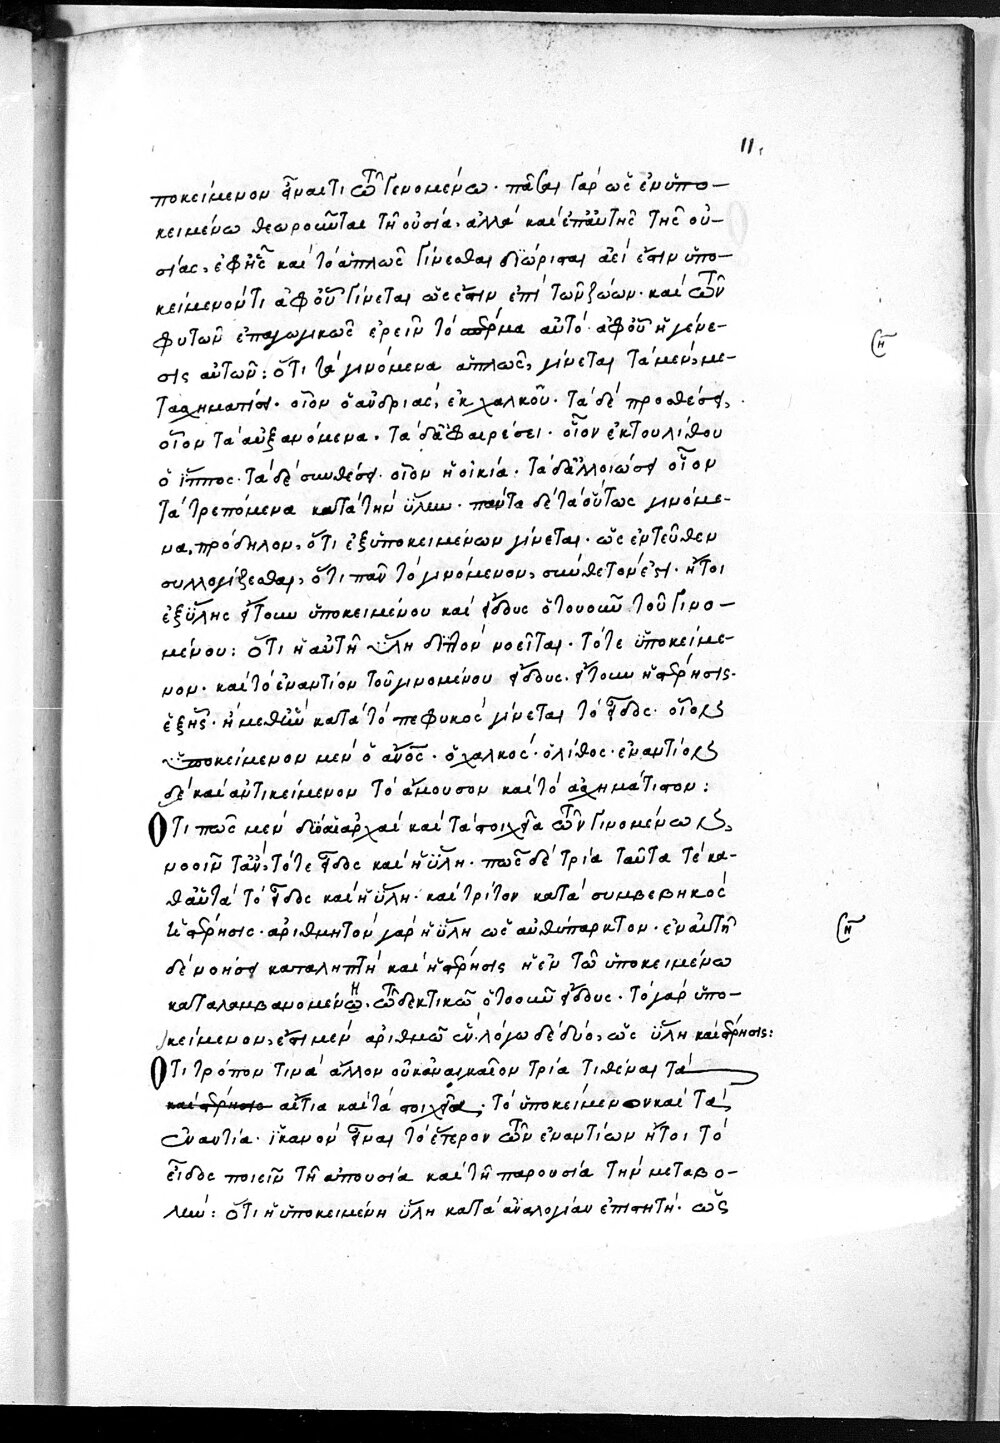 11.
ποκείμενον εἶναί τι τῶ γενομένω· πᾶσαι γὰρ ὡς ἐν ὑπο-
κειμένω θεωροῦνται τῆ οὐσία, ἀλλὰ καὶ ἐπ' αὐτῆς τῆς οὐ-
σίας, ἐφ' ἧς καὶ τὸ ἁπλῶς γίνεσθαι διώρισται ἀεί ἐστιν ὑπο-
κείμενόν τι ἀφ' οὗ γίνεται ὥς ἐστιν ἐπὶ τῶν ζώων· καὶ τῶν
φυτῶν ἐπαγωγικῶς ἐρεῖν τὸ σπέρμα αὐτὸ ἀφ' οὗ ἡ γένε-
σις αὐτῶν: ὅτι τὰ γινόμενα ἁπλῶς, γίνεται τὰ μὲν, με-
τασχηματίσει· οἷον ὁ ἀνδριάς, ἐκ χαλκοῦ· τὰ δὲ προσθέσει,
οἷον τὰ αὐξανόμενα· τὰ δ' ἀφαιρέσει· οἷον ἐκ τοῦ λίθου
ὁ ἵππος· τὰ δὲ συνθέσει· οἷον ἡ οἰκία· τὰ δ' ἀλλοιώσει οἷον
τὰ τρεπόμενα κατὰ τὴν ὕλην· πάντα δὲ τὰ οὕτως γινόμε-
να, πρόδηλον, ὅτι ἐξ ὑποκειμένων γίνεται· ὡς ἐντεῦθεν
συλλογίζεσθαι, ὅτι πᾶν τὸ γινόμενον, σύνθετόν ἐστι· ἤτοι
ἐξ ὕλης ἤτουν ὑποκειμένου καὶ εἴδους ὁτουοῦν τοῦ γινο-
μένου: ὅτι ἡ αὐτὴ ὕλη διττὸν νοεῖται· τό τε ὑποκείμε-
νον· καὶ τὸ ἐναντίον τοῦ γινομένου εἴδους· ἤτουν ἡ στέρησις·
ἐξ ἧς· ἢ μεθ' ἣν κατὰ τὸ πεφυκὸς γίνεται τὸ εἶδος· οἷον
ὑποκείμενον μὲν ὁ ἄνος· ὁ χαλκός· ὁ λίθος· ἐναντίον
δὲ καὶ ἀντικείμενον τὸ ἄμουσον καὶ τὸ ἀσχημάτιστον:
Ὅτι πῶς μὲν δύο αἱ ἀρχαὶ καὶ τὰ στοιχεῖα τῶν γινομένων,
νοοῖντ' ἄν· τό τε εἶδος καὶ ἡ ὕλη· πῶς δὲ τρία ταῦτα τὲ κα-
θ' αὑτὰ τὸ εἶδος καὶ ἡ ὕλη· καὶ τρίτον κατὰ συμβεβηκὸς
ἡ στέρησις· ἀριθμητὸν γὰρ ἡ ὕλη ὡς αὐθύπαρκτον· ἐν αὐτῆ
δὲ νοήσει καταληπτὴ καὶ ἡ στέρησις ἡ ἐν τῶ ὑποκειμένω
καταλαμβανομένη, τῶ δεκτικῶ ὁτουοῦν εἴδους· τὸ γὰρ ὑπο-
κείμενον, ἔστι μὲν ἀριθμῶ ἕν· λόγω δὲ δύο, ὡς ὕλη καὶ στέρησις:
Ὅτι τρόπον τινὰ ἄλλον οὐκ ἀναγκαῖον τρία τιθέναι τὰ
καὶ στέρησις αἴτια καὶ τὰ στοιχεῖα, τὸ ὑποκείμενον καὶ τὰ
ἐναντία· ἱκανὸν εἶναι τὸ ἕτερον τῶν ἐναντίων ἤτοι τὸ
εἶδος ποιεῖν τῆ ἀπουσία καὶ τῆ παρουσία τὴν μεταβο-
λήν: ὅτι ἡ ὑποκειμένη ὕλη κατὰ ἀναλογίαν ἐπιστητή· ὡς